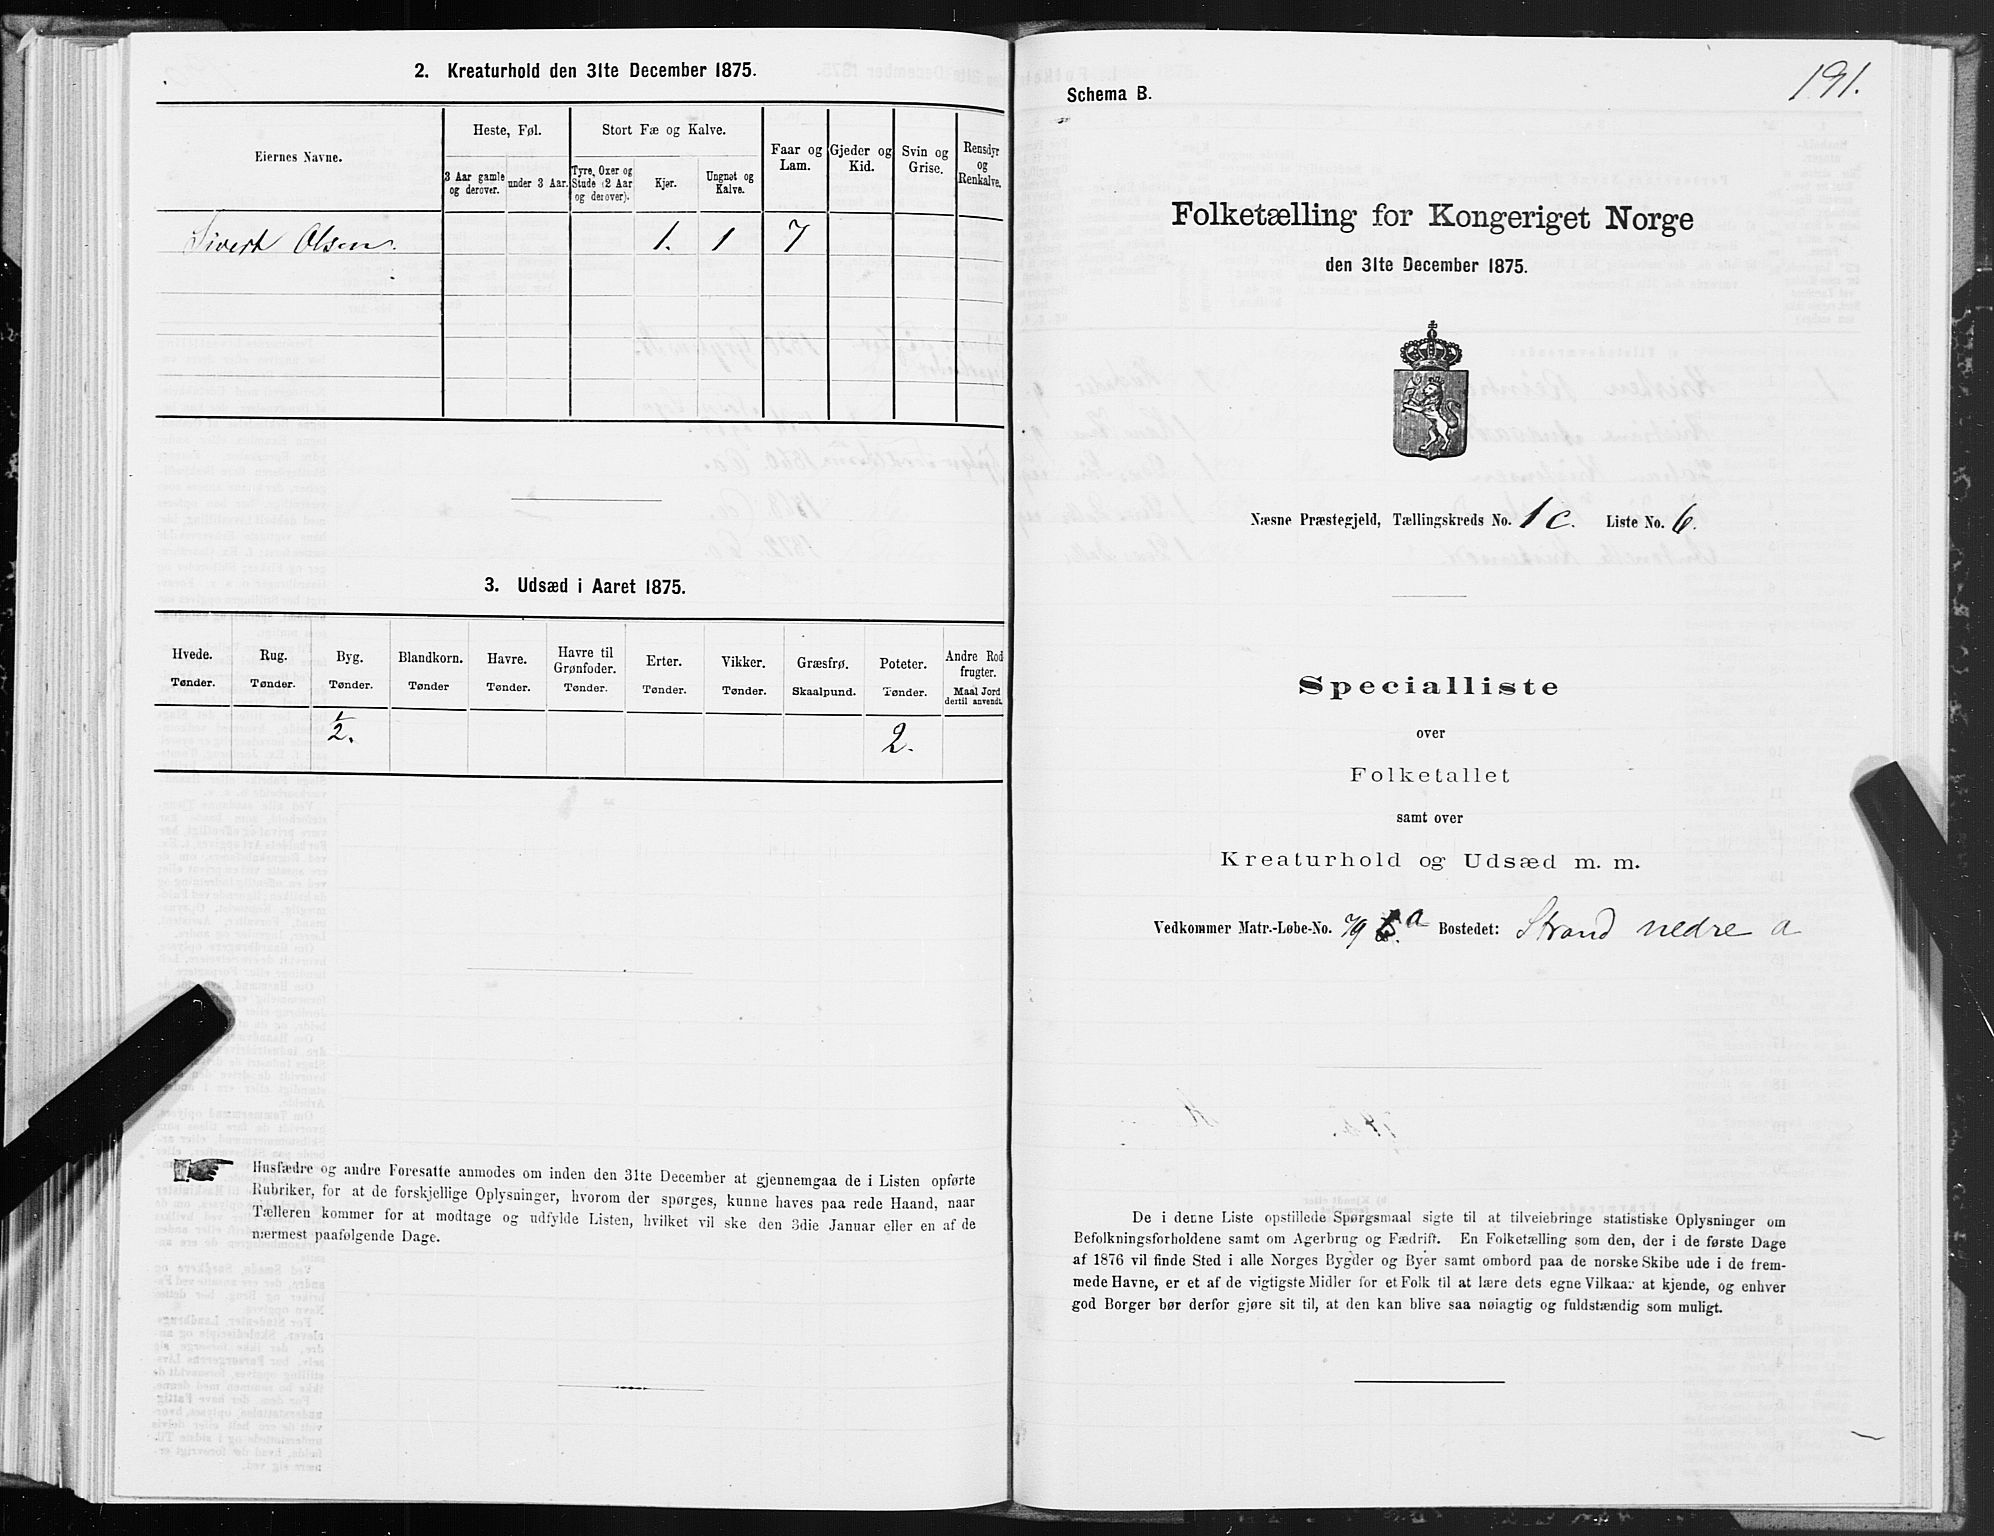 2. Kreaturhold den 31te December 1875.
Eiernes Navne.
Heste, Føl.
3 Aar gamle og derover.
under 3 Aar.
Stort Fæ og Kalve.
Tyre, Oxer og Stude (2 Aar og derover).
Kjør.
Ungnøt og Kalve.
Faar og Lam.
Gjeder og Kid.
Svin og Grise.
Rensdyr og Renkalve.
Sivert Olsen. 1. 1 7
3. Udsæd i Aaret 1875.
Hvede. Rug. Byg. Blandkorn. Havre. Havre til Grønfoder. Erter. Vikker. Græsfrø. Poteter. Andre Rodfrugter.
Tønder. Tønder. Tønder. Tønder Tønder. Tønder. Tønder. Tønder. Skaalpund. Tønder. Maal Jord dertil anvendt.
1/2. 2.
Husfædre og andre Foresatte anmodes om inden den 31te December at gjennemgaa de i Listen opførte
Rubriker, for at de forskjellige Oplysninger, hvorom der spørges, kunne haves paa rede Haand, naar
Tælleren kommer for at modtage og udfylde Listen, hvilket vil ske den 3die Januar eller en af de
nærmest paafølgende Dage.
191.
Schema B.
Folketælling for Kongeriget Norge
den 31te December 1875.
Næsne Præstegjeld, Tællingskreds No. 1c. Liste No. 6.
Specialliste
over
Folketallet
samt over
Kreaturhold og Udsæd m. m.
Vedkommer Matr.-Løbe-No. 79 a Bostedet: Strand nedre a
De i denne Liste opstillede Spørgsmaal sigte til at tilveiebringe statistiske Oplysninger om
Befolkningsforholdene samt om Agerbrug og Fædrift. En Folketælling som den, der i de første Dage
af 1876 vil finde Sted i alle Norges Bygder og Byer samt ombord paa de norske Skibe ude i de frem-
mede Havne, er et af de vigtigste Midler for et Folk til at lære dets egne Vilkaar at kjende, og enhver
god Borger bør derfor gjøre sit til, at den kan blive saa nøiagtig og fuldstændig som muligt.